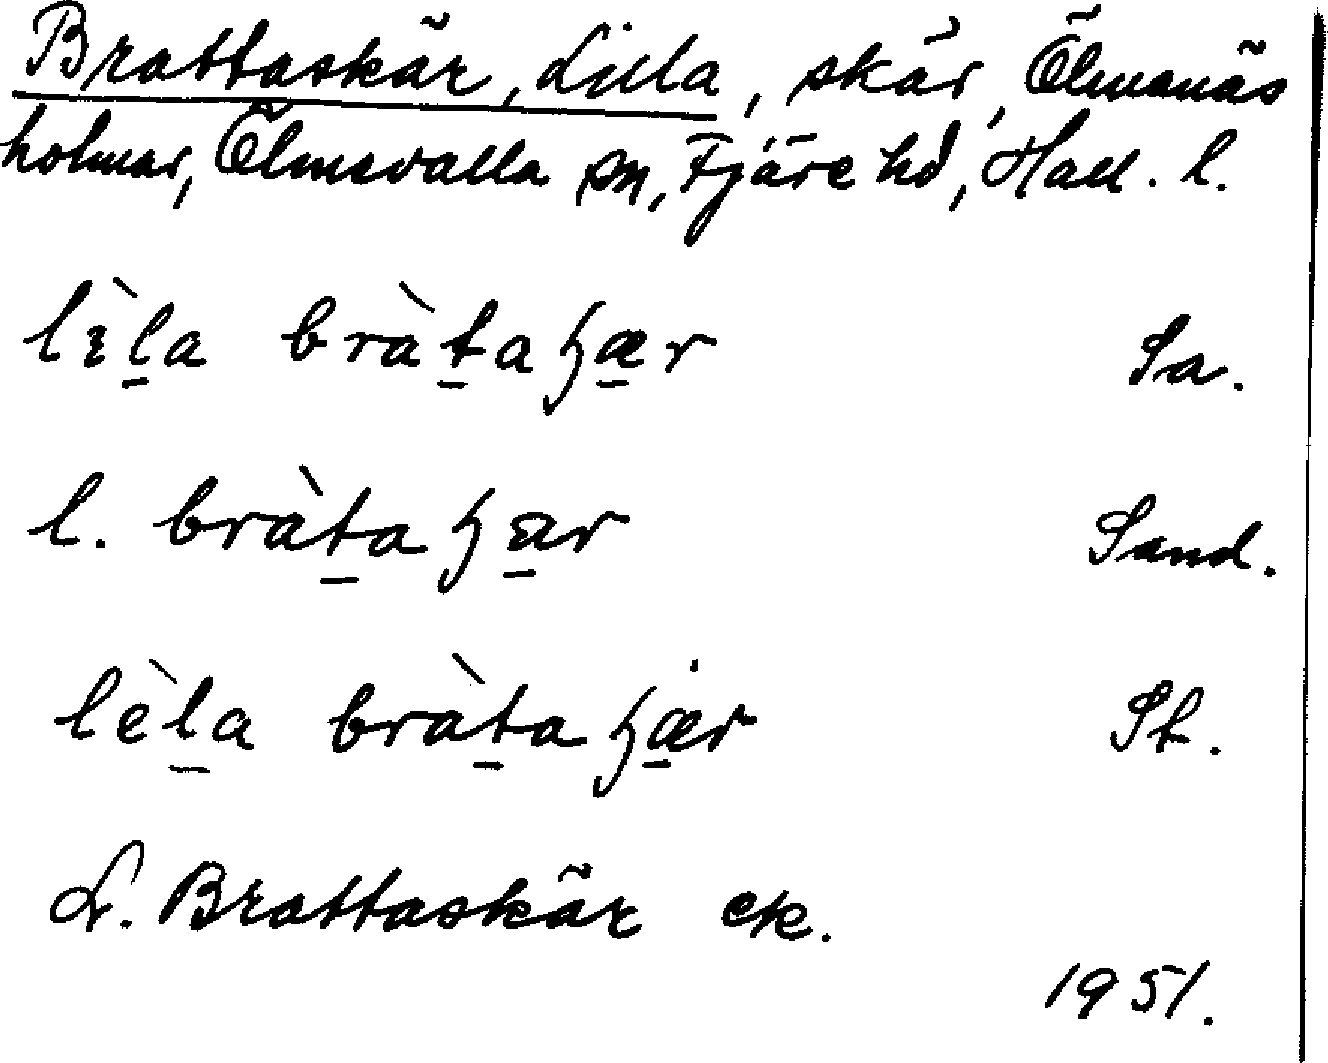 Brattaskär, Lilla, skär, Ölmanäs
holmar, Ölmevalla sn, Fjäre hd, Hall. l.
lìl̠a bràt̠aʃæ̠r Sa.
l. bràt̠aʃæ̠r Sand.
lèl̠a bràt̠aʃæ̠r St.
L. Brattaskär ek.
1951.